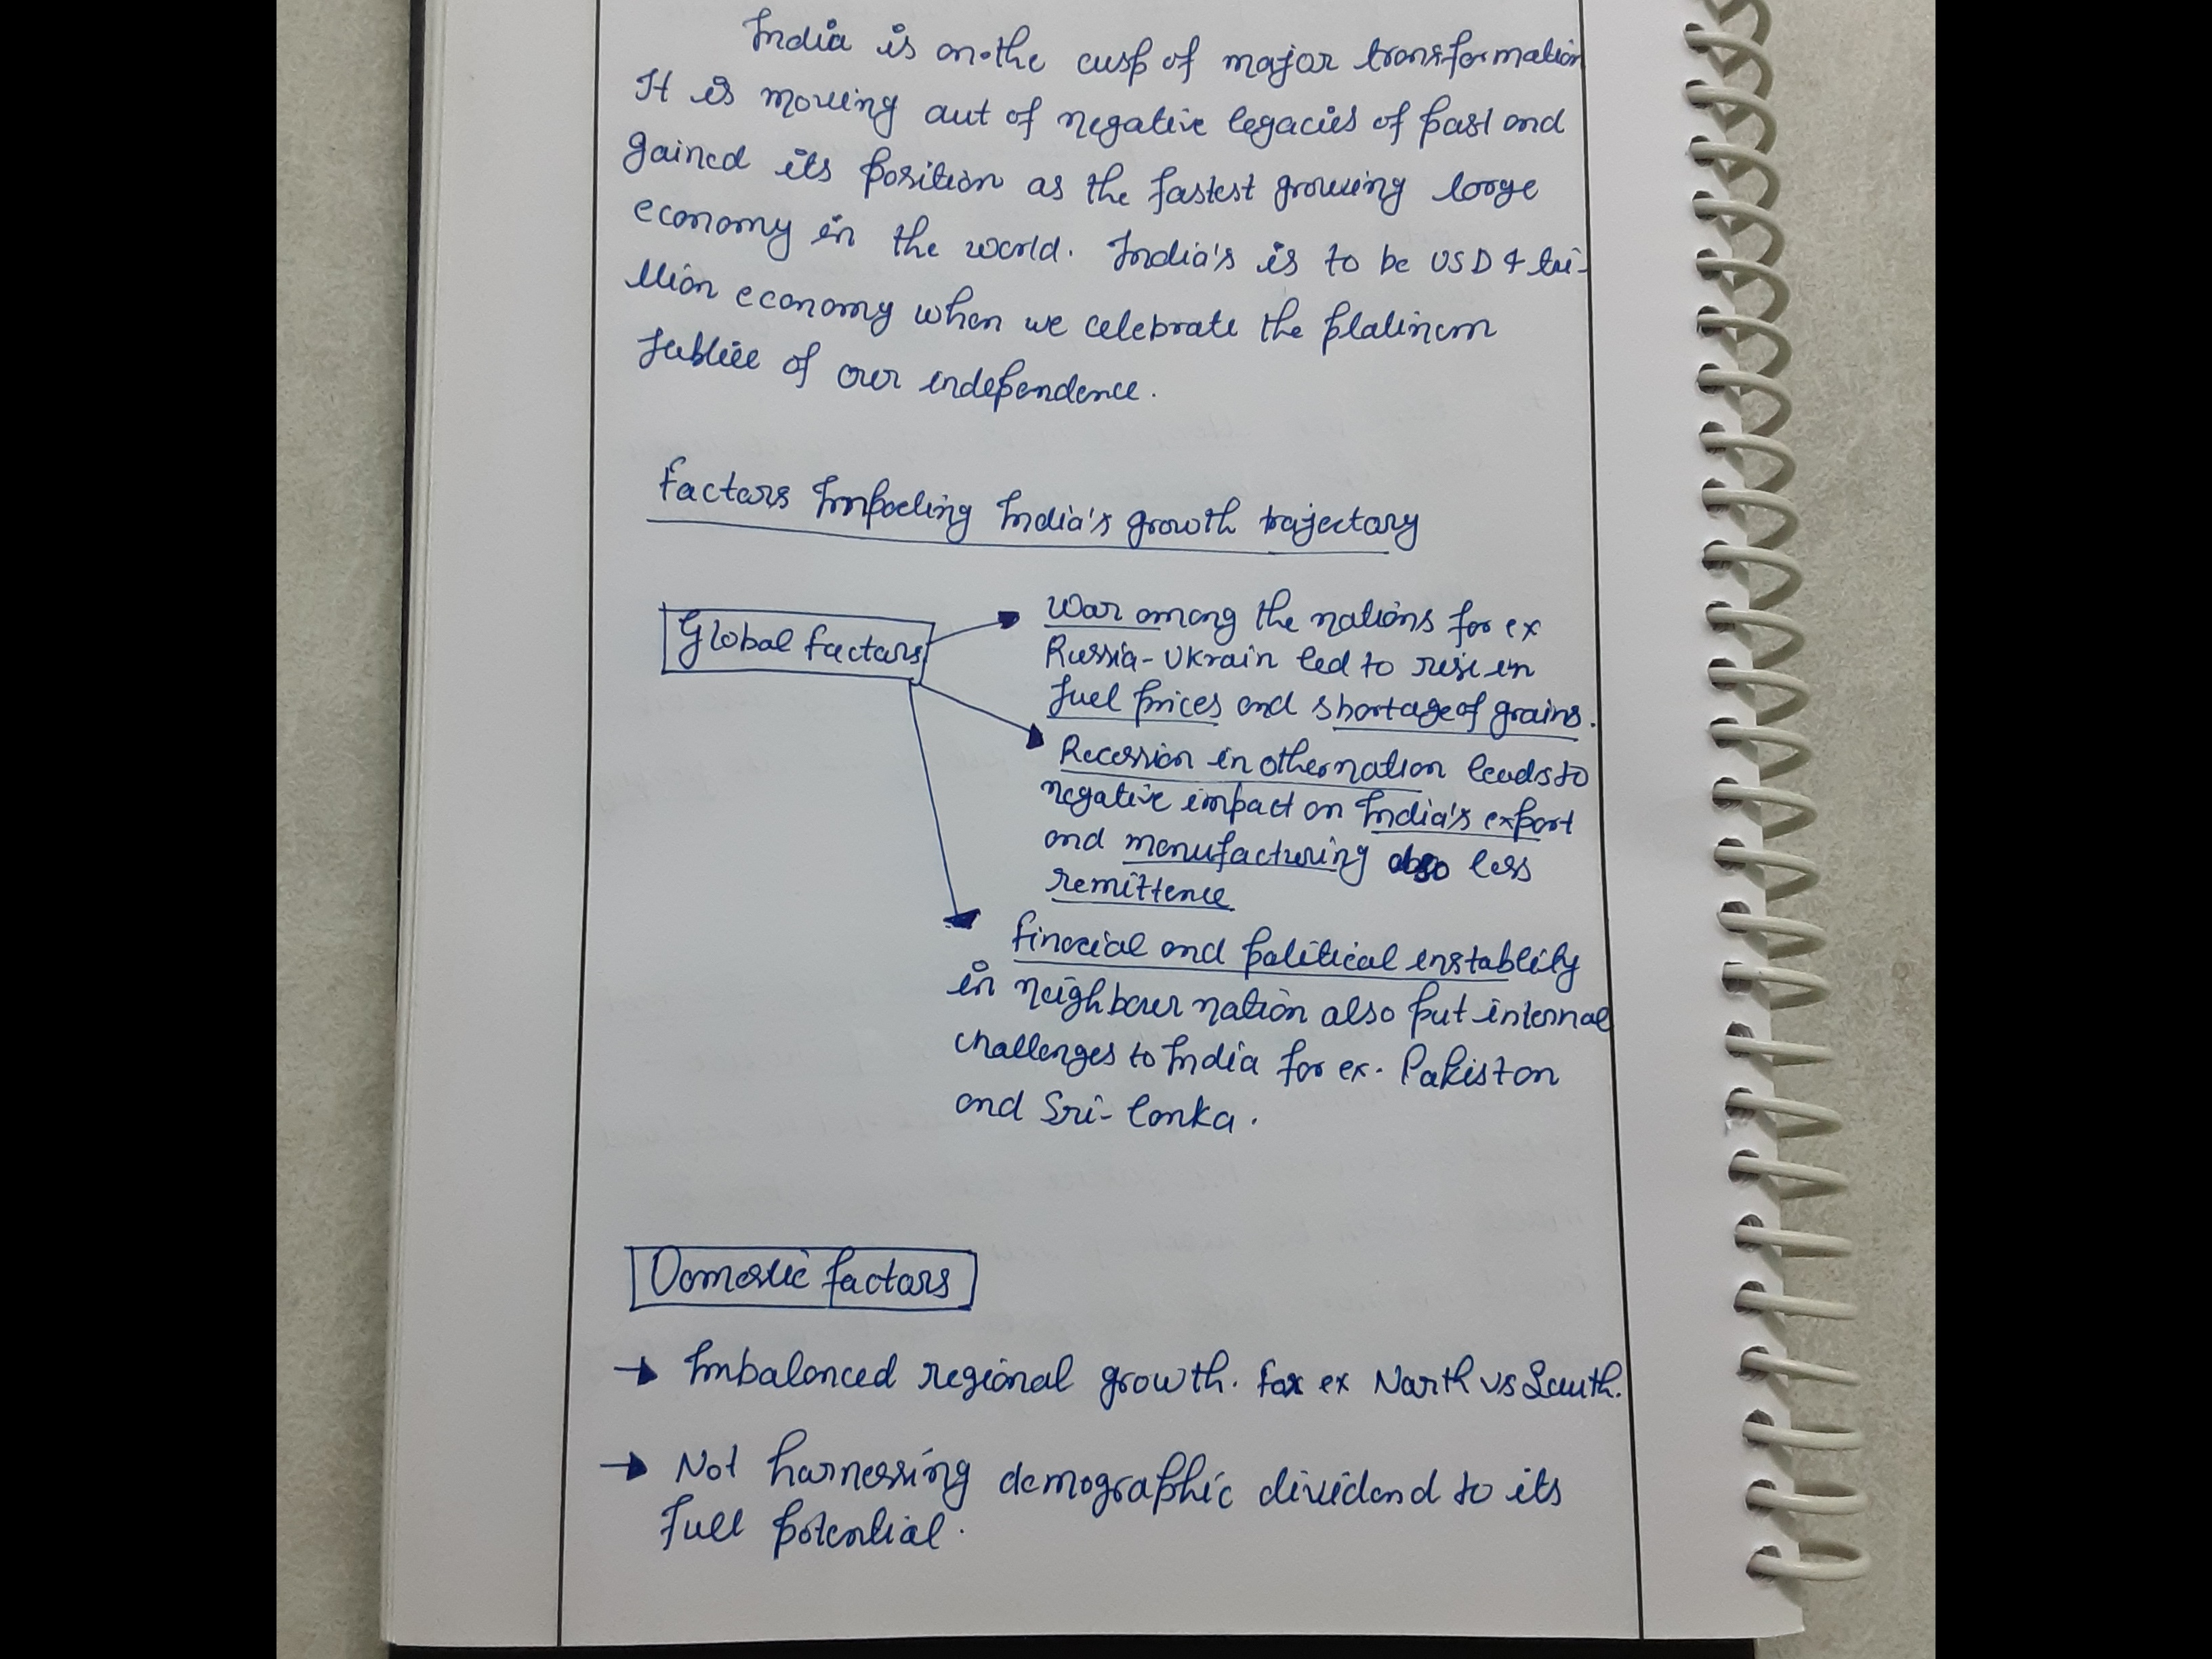 India is on the cusp of major transformation
It is moving out of negative legacies of past and
gained its position as the fastest growing large
economy in the world. India's is to be USD 4 tri-
llion economy when we celebrate the platinum
Jubliee of our independence.
Factors Impacting India's growth trajectory
Global factors
War among the nations for ex
Russia-Ukrain led to rise in
fuel prices and shortage of grains.
Recession in other nation leads to
negative impact on India's export
and manufacturing also less
remittence
Finacial and political instablity
in neighbour nation also put internal
challenges to India for ex. Pakistan
and Sri-Lanka.
Domestic factors
→ Imbalanced regional growth. For ex North vs South.
→ Not harnessing demographic dividend to its
full potential.